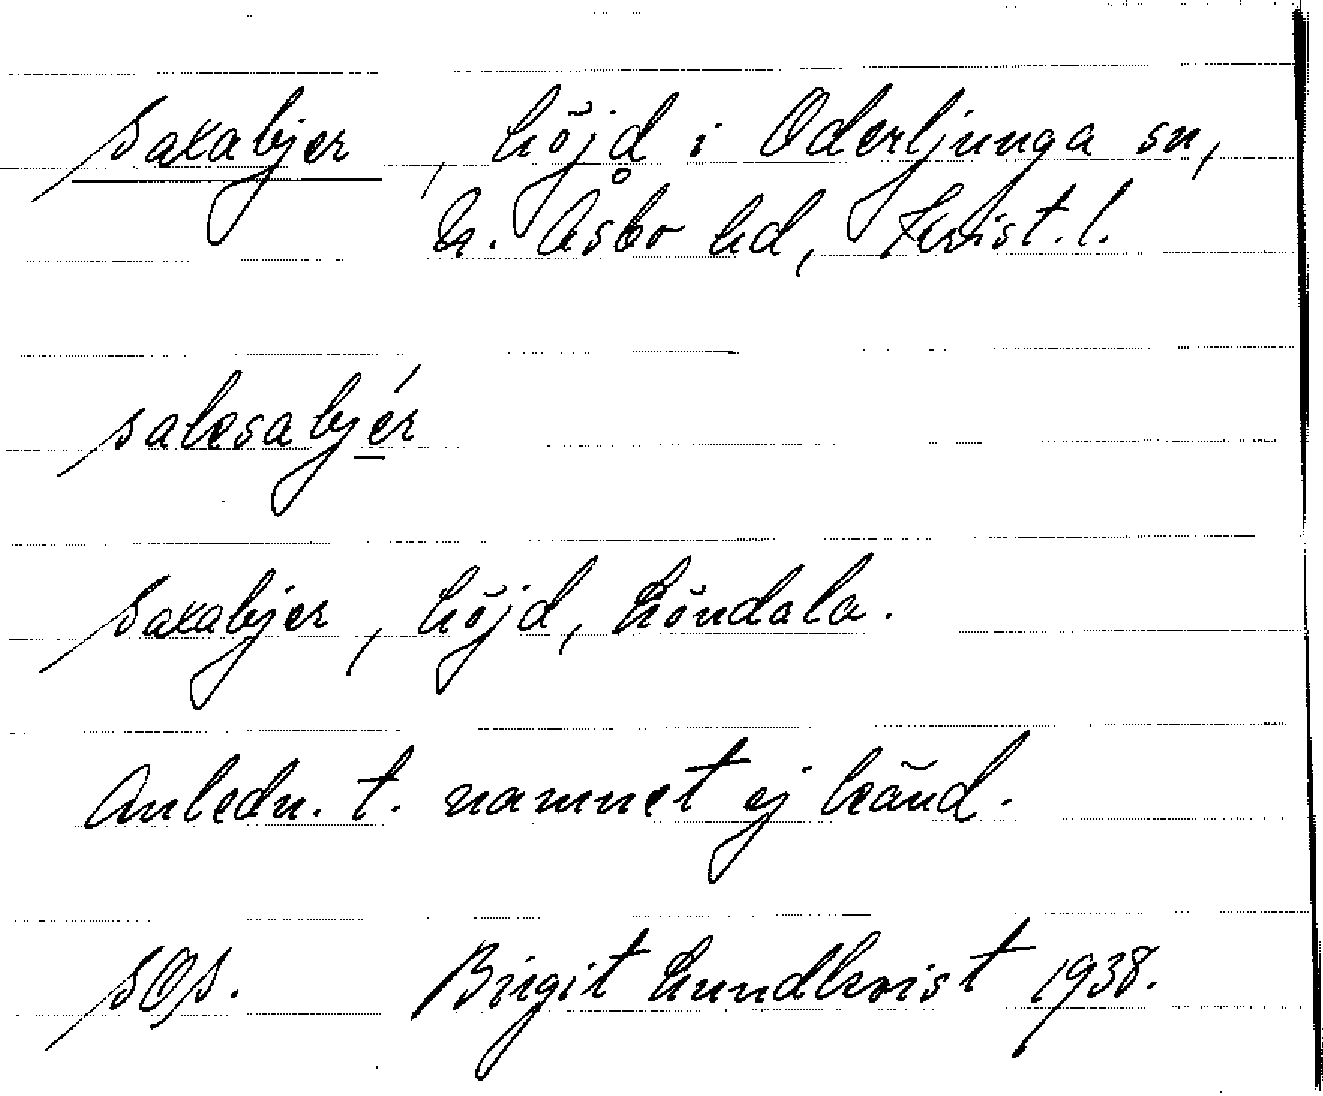 Saxabjer, höjd i Oderljunga sn,
N. Åsbo hd, Krist.l.
saksabjér
Saxabjer, höjd, Löndala.
Anledn. t. namnet ej känd.
SOS. Birgit Lundkvist 1938.